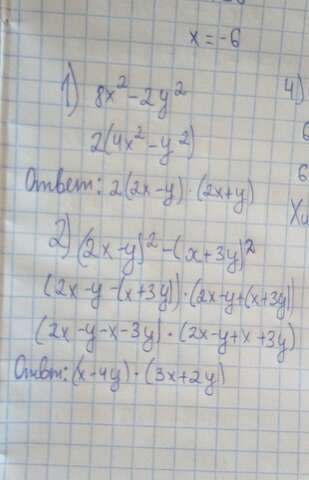 x = -6
1) 8x² - 2y²
2(4x² - y²)
Ответ: 2(2x-y)·(2x+y)
2) (2x-y)² - (x+3y)²
(2x-y-(x+3y))·(2x-y+(x+3y))
(2x-y-x-3y)·(2x-y+x+3y)
Ответ: (x-4y)·(3x+2y)
4)
6
6
Хи